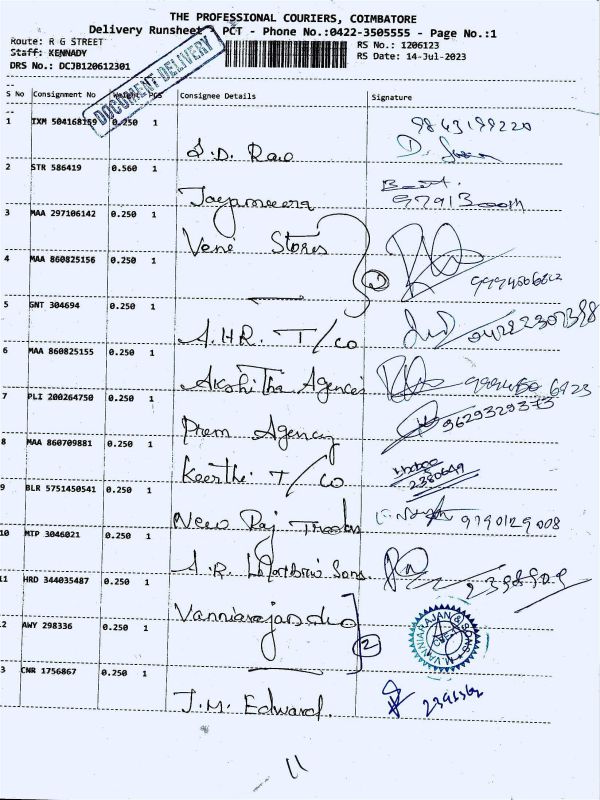 THE PROFESSIONAL COURIERS, COIMBATORE
Delivery Runsheet - PCT - Phone No.:0422-3505555 - Page No.:1
Route: R G STREET
Staff: KENNADY
DRS No.: DCJB120612301
RS No.: 1206123
RS Date: 14-Jul-2023
DOCUMENT DELIVERY
S No Consignment No Weight PCS Consignee Details Signature
1 IXM 504168159 0.250 1 S.D. Rao 9843199220
2 STR 586419 0.560 1 Jayameera
3 MAA 297106142 0.250 1 Vani Stores
4 MAA 860825156 0.250 1 2
5 GNT 304694 0.250 1 A.H.R. T/co
6 MAA 860825155 0.250 1 Akshitha Agencies
7 PLI 200264750 0.250 1 Prem Agency 9629329373
8 MAA 860709881 0.250 1 Keerthi T/co 2380649
9 BLR 5751450541 0.250 1 New Raj Traders 9790129008
10 MTP 3046021 0.250 1 A.R. Sons
11 HRD 344035487 0.250 1 Vanniarajan &co
2 AWY 298336 0.250 1 2
M. VANNIARAJAN & SONS
3 CNR 1756867 0.250 1 J.M. Edward.
11